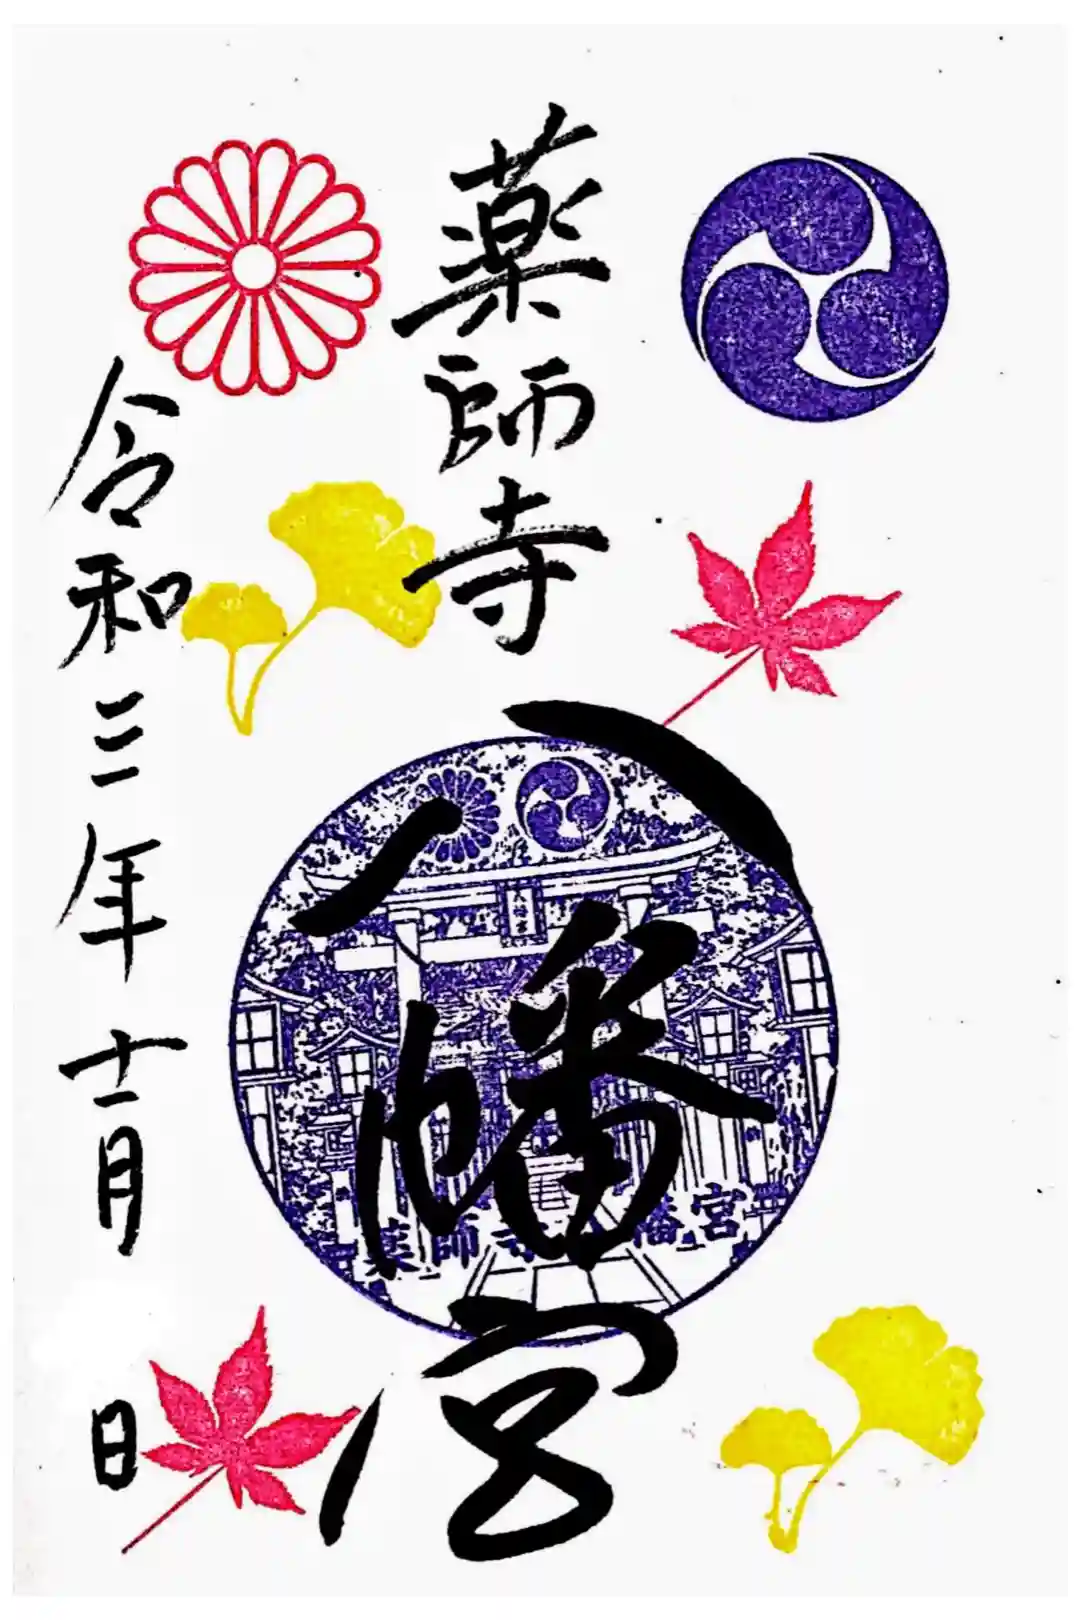 薬師寺
八幡宮
八幡宮
薬師寺八幡宮
令和三年十一月
日